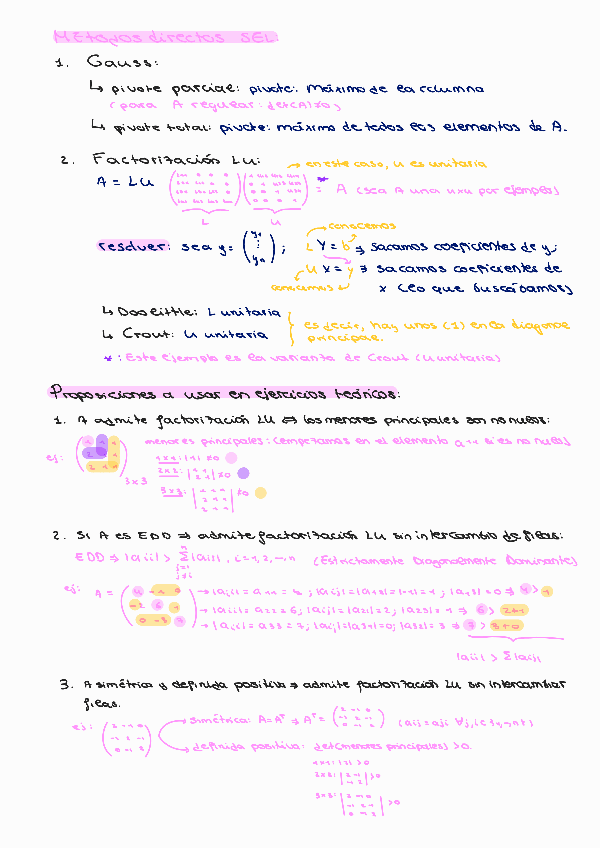 Métodos directos SEL:
1. Gauss:
↳ pivote parcial: pivote: máximo de la columna
(para A regular: det(A)≠0)
↳ pivote total: pivote: máximo de todos los elementos de A.
2. Factorización LU:
→ en este caso, U es unitaria
A = LU
* = A (sea A una 4x4 por ejemplo)
L U
conocemos
resolver: sea y = (y1 ⋮ yn) ; L y = b ⇒ sacamos coeficientes de y.
U x = y ⇒ sacamos coeficientes de
conocemos
x (lo que buscábamos)
↳ Doolittle: L unitaria
↳ Crout: U unitaria
es decir, hay unos (1) en la diagonal
principal.
* : Este ejemplo es la variante de Crout (U unitaria)
Proposiciones a usar en ejercicios teóricos:
1. A admite factorización LU ⇔ los menores principales son no nulos:
ej:
3x3
menores principales: empezamos en el elemento a11 si es no nulo
1x1: |1| ≠0
2x2: ≠0
3x3: ≠0
2. Si A es EDD ⇒ admite factorización LU sin intercambio de filas:
EDD ⇒ |aii| > Σ |aij|, i=1,2,…,n (Estrictamente Diagonalmente Dominante)
j=1
j≠i
ej: A = (4 -1 0
-2 6 1
0 -3 7)
→ |aii| = a11 = 4 ; |aij| = |a12| = |-1| = 1 ; |a13| = 0 ⇒ 4 > 1
→ |aii| = a22 = 6; |aij| = |a21| = 2; |a23| = 1 ⇒ 6 > 2+1
→ |aii| = a33 = 7; |aij| = |a31| = 0; |a32| = 3 ⇒ 7 > 3+0
|aii| > Σ|aij|
3. A simétrica y definida positiva ⇒ admite factorización LU sin intercambiar
filas.
ej: (2 -1 0
-1 2 -1
0 -1 2)
simétrica: A=Aᵀ ⇒ Aᵀ =
definida positiva: det(menores principales) >0.
1x1: |2| >0
2x2: |2 -1
-1 2| >0
3x3: |2 -1 0
-1 2 -1
0 -1 2| >0